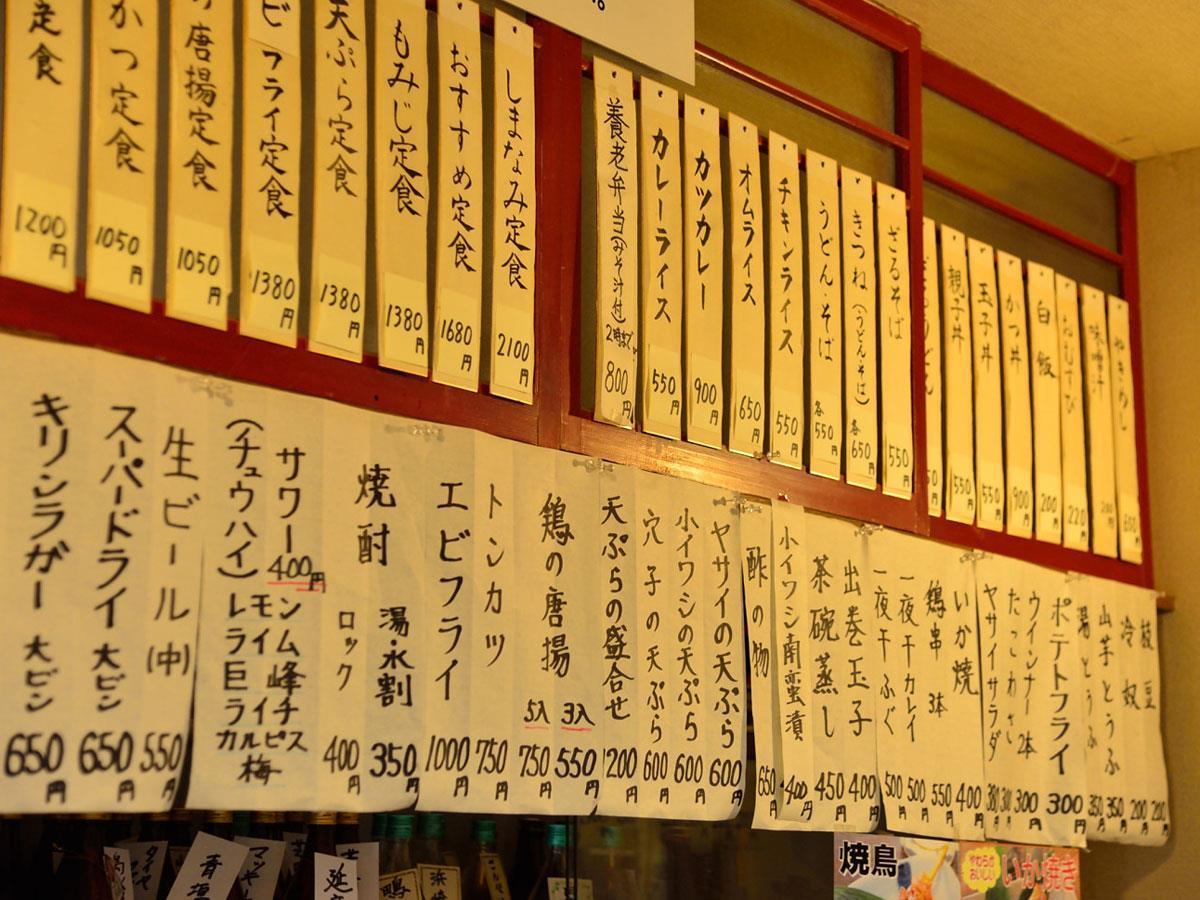 定食 1200円
かつ定食 1050円
唐揚定食 1050円
ビフライ定食 1380円
天ぷら定食 1380円
もみじ定食 1380円
おすすめ定食 1680円
しまなみ定食 2100円
養老弁当(みそ汁付) 2時まで 800円
カレーライス 550円
カツカレー 900円
オムライス 650円
チキンライス 550円
うどん・そば 各550円
きつね(うどん・そば) 各650円
ざるそば 550円
親子丼 550円
玉子丼 550円
かつ丼 900円
白飯 200円
おむすび 220円
味噌汁 200円
やきめし 650円
キリンラガー 大ビン 650円
スーパードライ 大ビン 650円
生ビール(中) 550円
サワー 400円
(チュウハイ)
レモン
ライム
巨峰
ライチ
カルピス
梅
焼酎
ロック 400円
湯・水割 350円
エビフライ 1000円
トンカツ 750円
鶏の唐揚 5入 750円 3入 550円
天ぷらの盛合せ 1200円
穴子の天ぷら 600円
小イワシの天ぷら 600円
ヤサイの天ぷら 600円
酢の物 650円
小イワシ南蛮漬 400円
茶碗蒸し 450円
出巻玉子 400円
一夜干ふぐ 500円
一夜干カレイ 500円
鶏串 3本 550円
いか焼 400円
ヤサイサラダ 380円
たこわさ
ウインナー 2本 300円
ポテトフライ 300円
湯どうふ 350円
山芋とうふ 350円
冷奴 200円
枝豆 200円
焼鳥
やわらか
おいしい
いか焼き